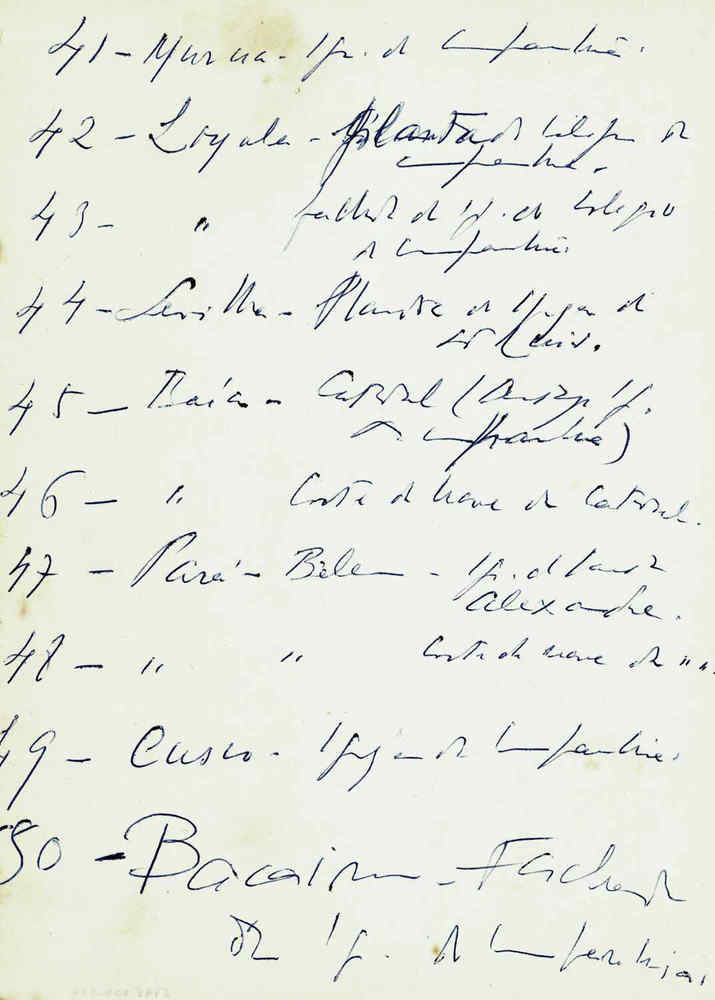 41 - Murcia - Ig. da Companhia.
42 - Loyola - Planta do Colégio da
Companhia.
43 - " fachada da Ig. do Colégio
da Companhia.
44 - Sevilha - Planta da Igreja de
S. Luis.
45 - Baía - Catedral (antiga Ig.
da Companhia)
46 - " Corte da nave da Catedral.
47 - Pará - Belem - Ig. de Santo
Alexandre.
48 - " " Corte da nave da " ".
49 - Cusco - Igreja da Companhia.
50 - Bacaim - Fachada
da Ig. da Companhia.